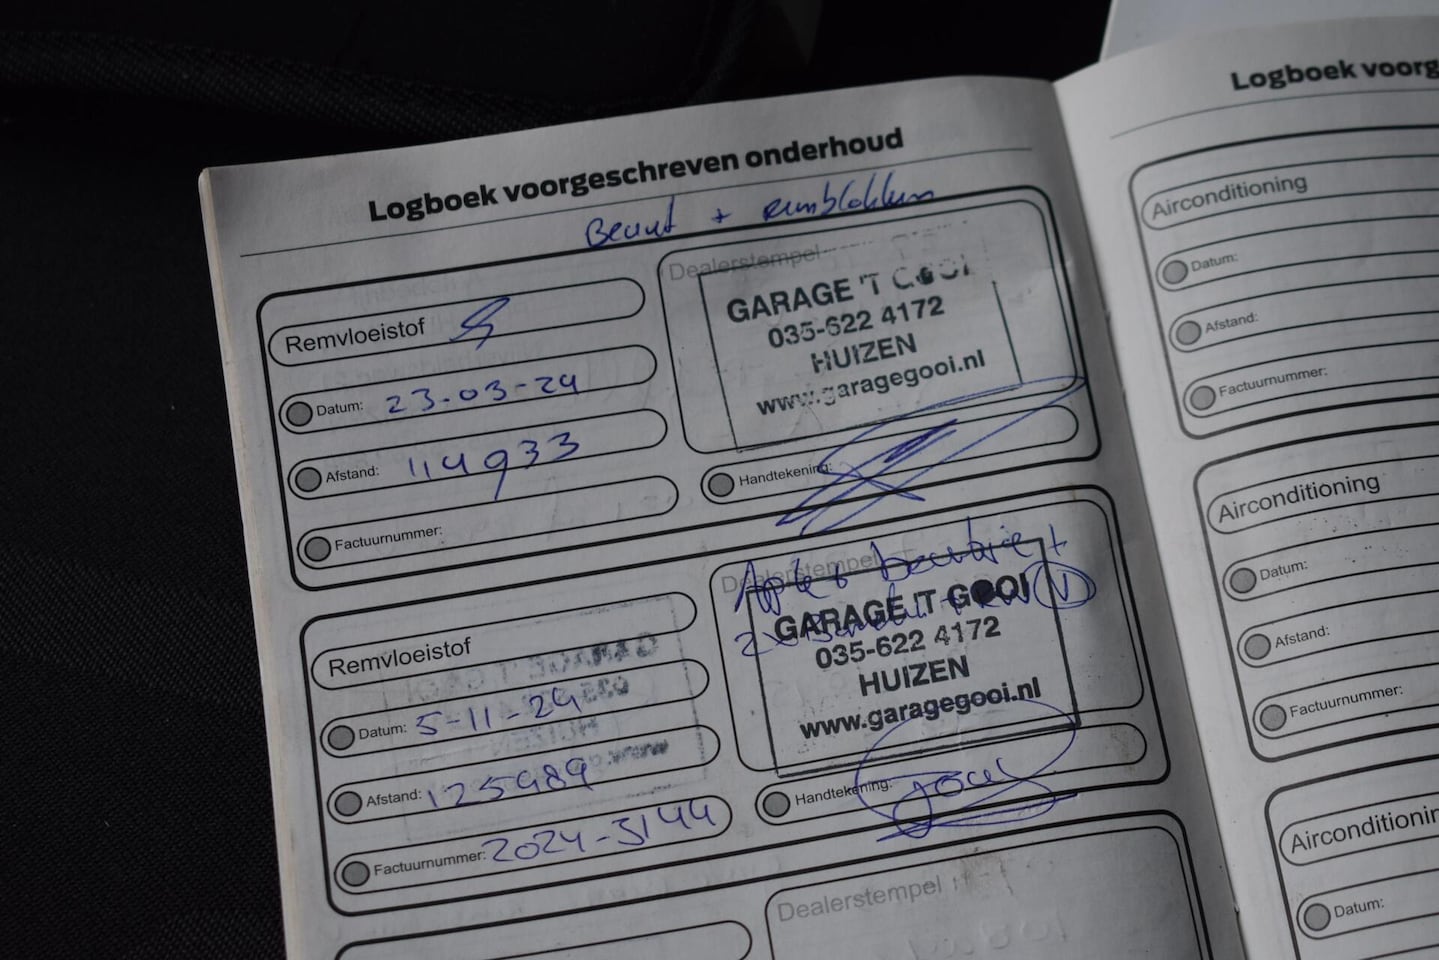 Logboek voorgeschreven onderhoud
Beurt + remblokken
Remvloeistof
Datum: 23-03-24
Afstand: 114933
Factuurnummer:
Dealerstempel
GARAGE 'T GOOI
035-622 4172
HUIZEN
www.garagegooi.nl
Handtekening:
Remvloeistof
Datum: 5-11-24
Afstand: 125989
Factuurnummer: 2024-3144
Dealerstempel
+
2x
GARAGE 'T GOOI
035-622 4172
HUIZEN
www.garagegooi.nl
Handtekening:
Dealerstempel
Logboek voorg
Airconditioning
Datum:
Afstand:
Factuurnummer:
Airconditioning
Datum:
Afstand:
Factuurnummer:
Airconditionin
Datum: